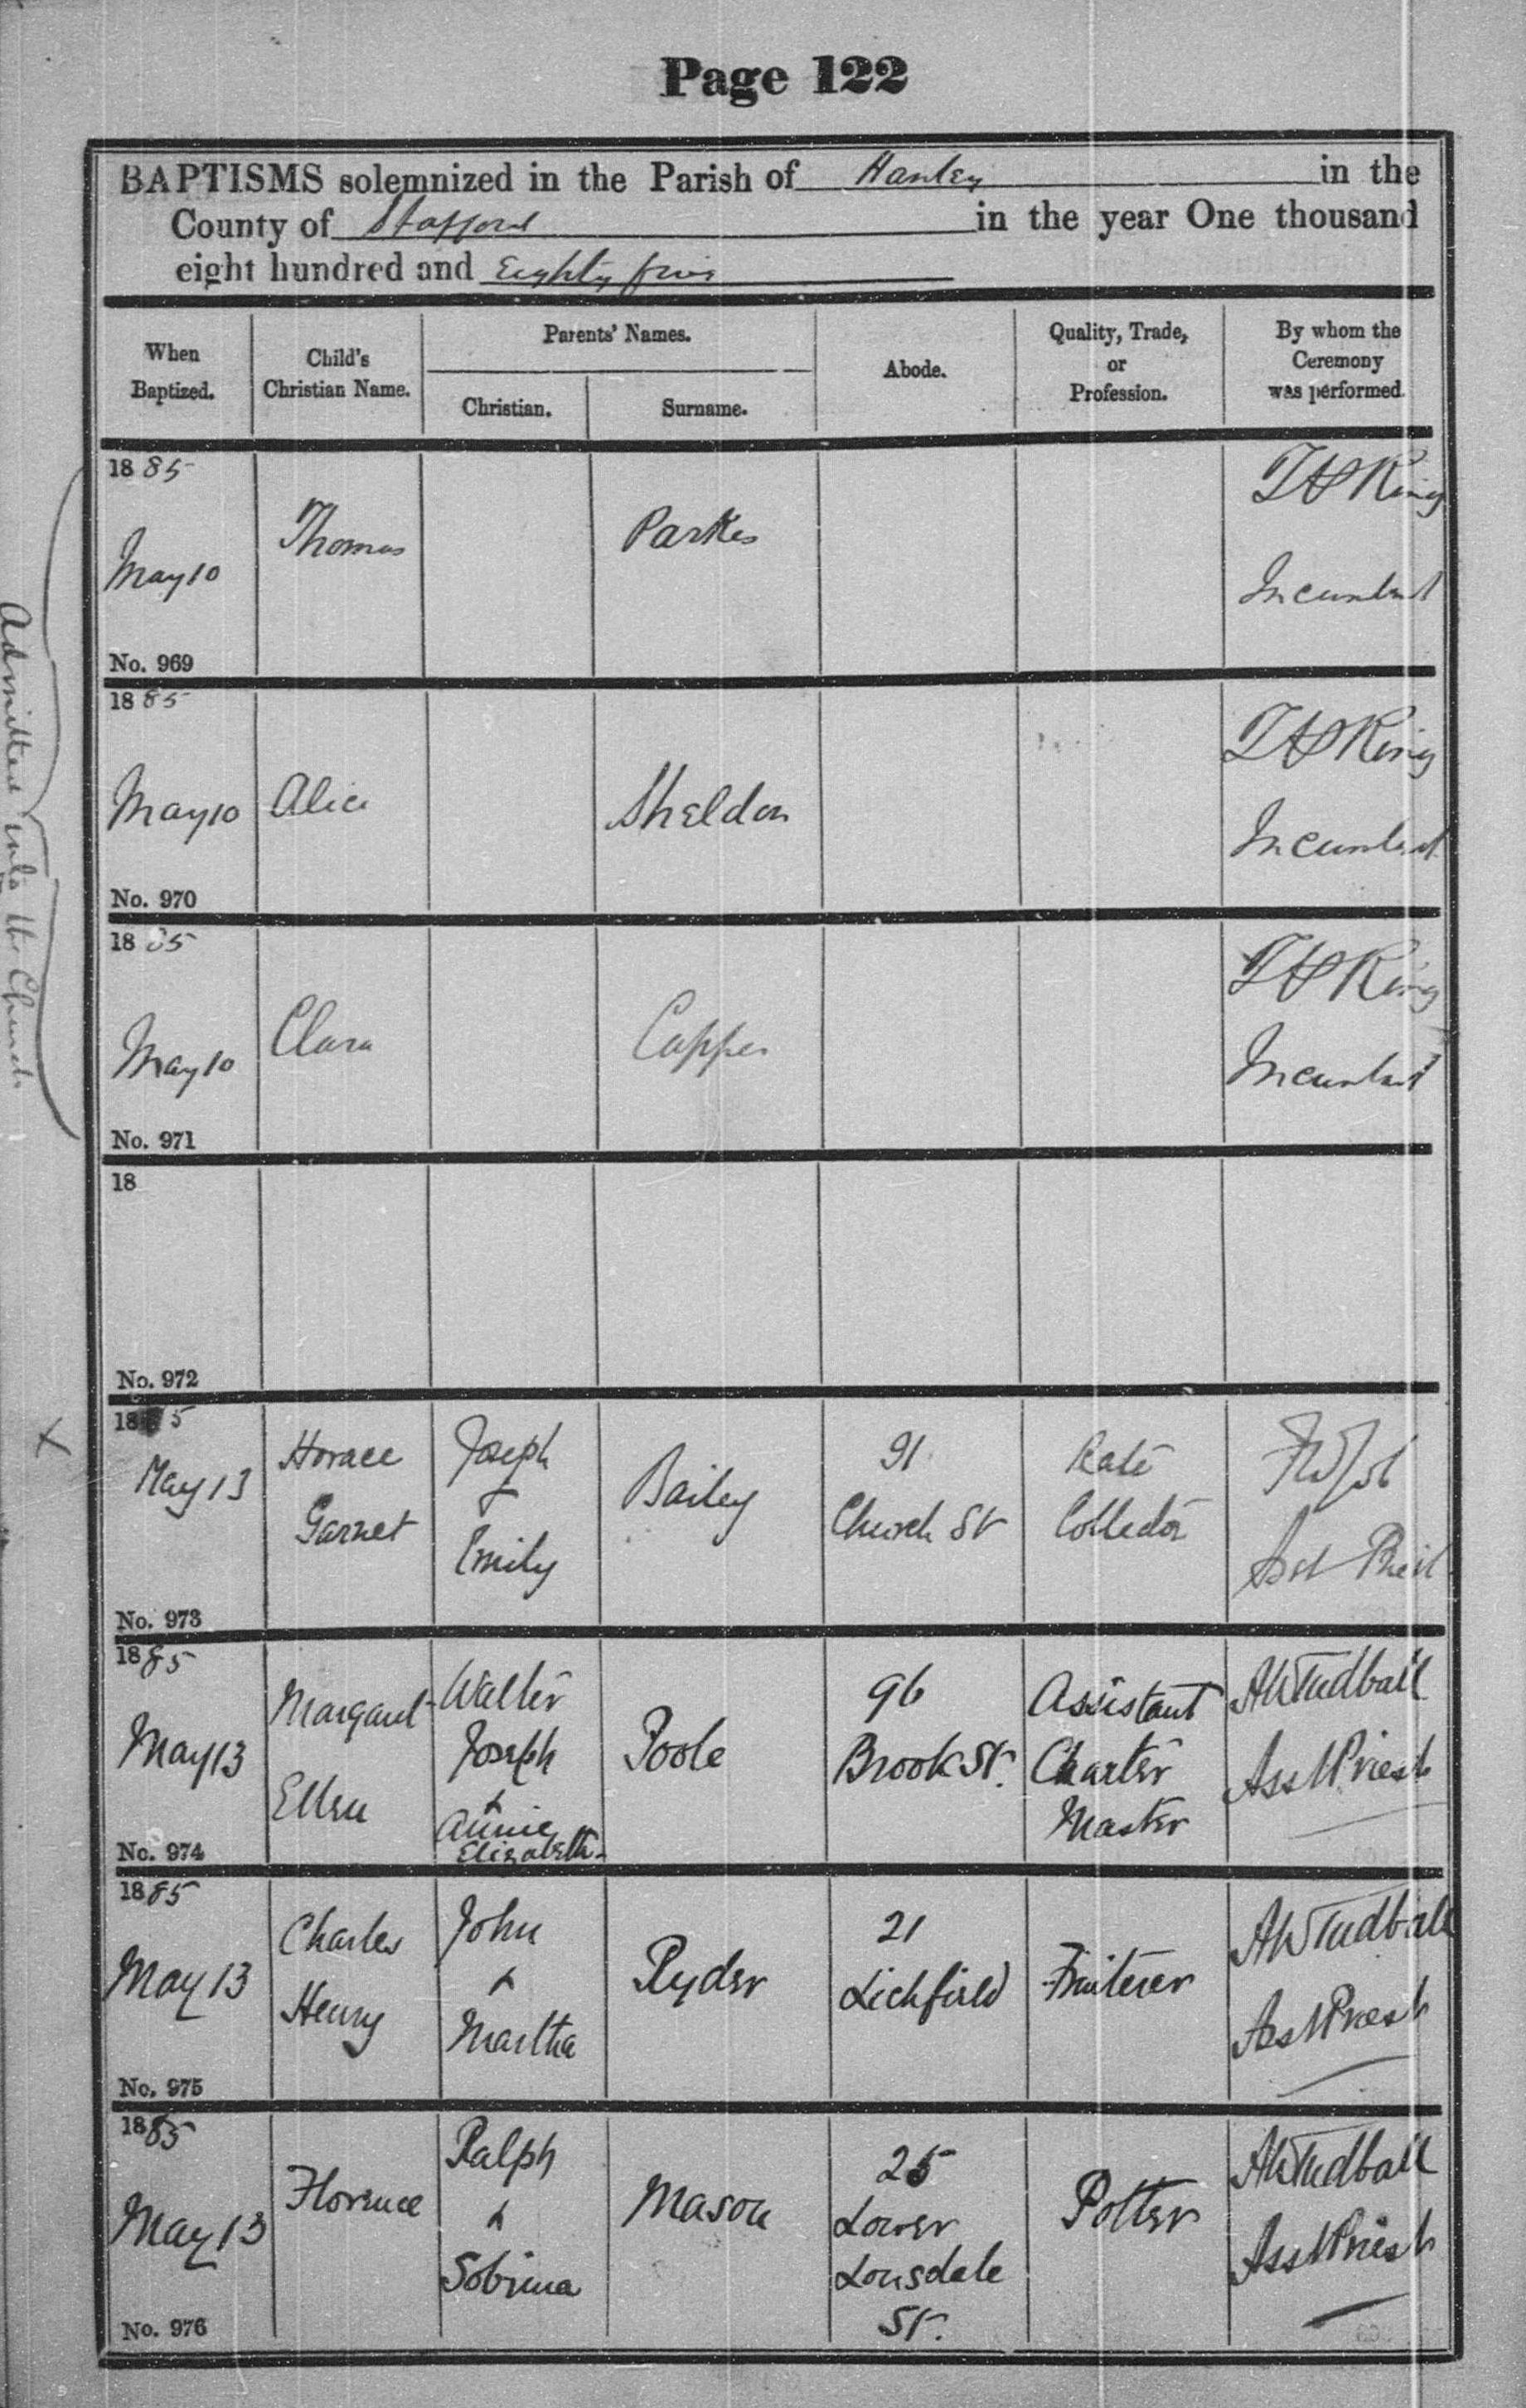 Page 122
BAPTISMS solemnized in the Parish of Hanley in the
County of Stafford in the year One thousand
eight hundred and Eighty five
When Baptized.
Child's Christian Name.
Parents' Names.
Christian.
Surname.
Abode.
Quality, Trade, or Profession.
By whom the Ceremony was performed.
Admitted into the Church
1885
May 10
Thomas
Parkes
King
Incumbent
No. 969
1885
May 10
Alice
Sheldon
King
Incumbent
No. 970
1885
May 10
Clara
Capper
King
Incumbent
No. 971
18
No. 972
X
1885
May 13
Horace
Garnet
Joseph
+
Emily
Bailey
91
Church St
Rate
Collector
Asst Priest
No. 973
1885
May 13
Margaret
Ellen
Walter
Joseph
+
Annie
Elizabeth
Poole
96
Brook St.
Assistant
Charter
Master
AWTudball
Asst Priest
No. 974
1885
May 13
Charles
Henry
John
+
Martha
Ryder
21
Lichfield
Fruiterer
AWTudball
Asst Priest
No. 975
1885
May 13
Florence
Ralph
+
Sobrina
Mason
25
Lower
Lonsdale
St.
Potter
AWTudball
Asst Priest
No. 976